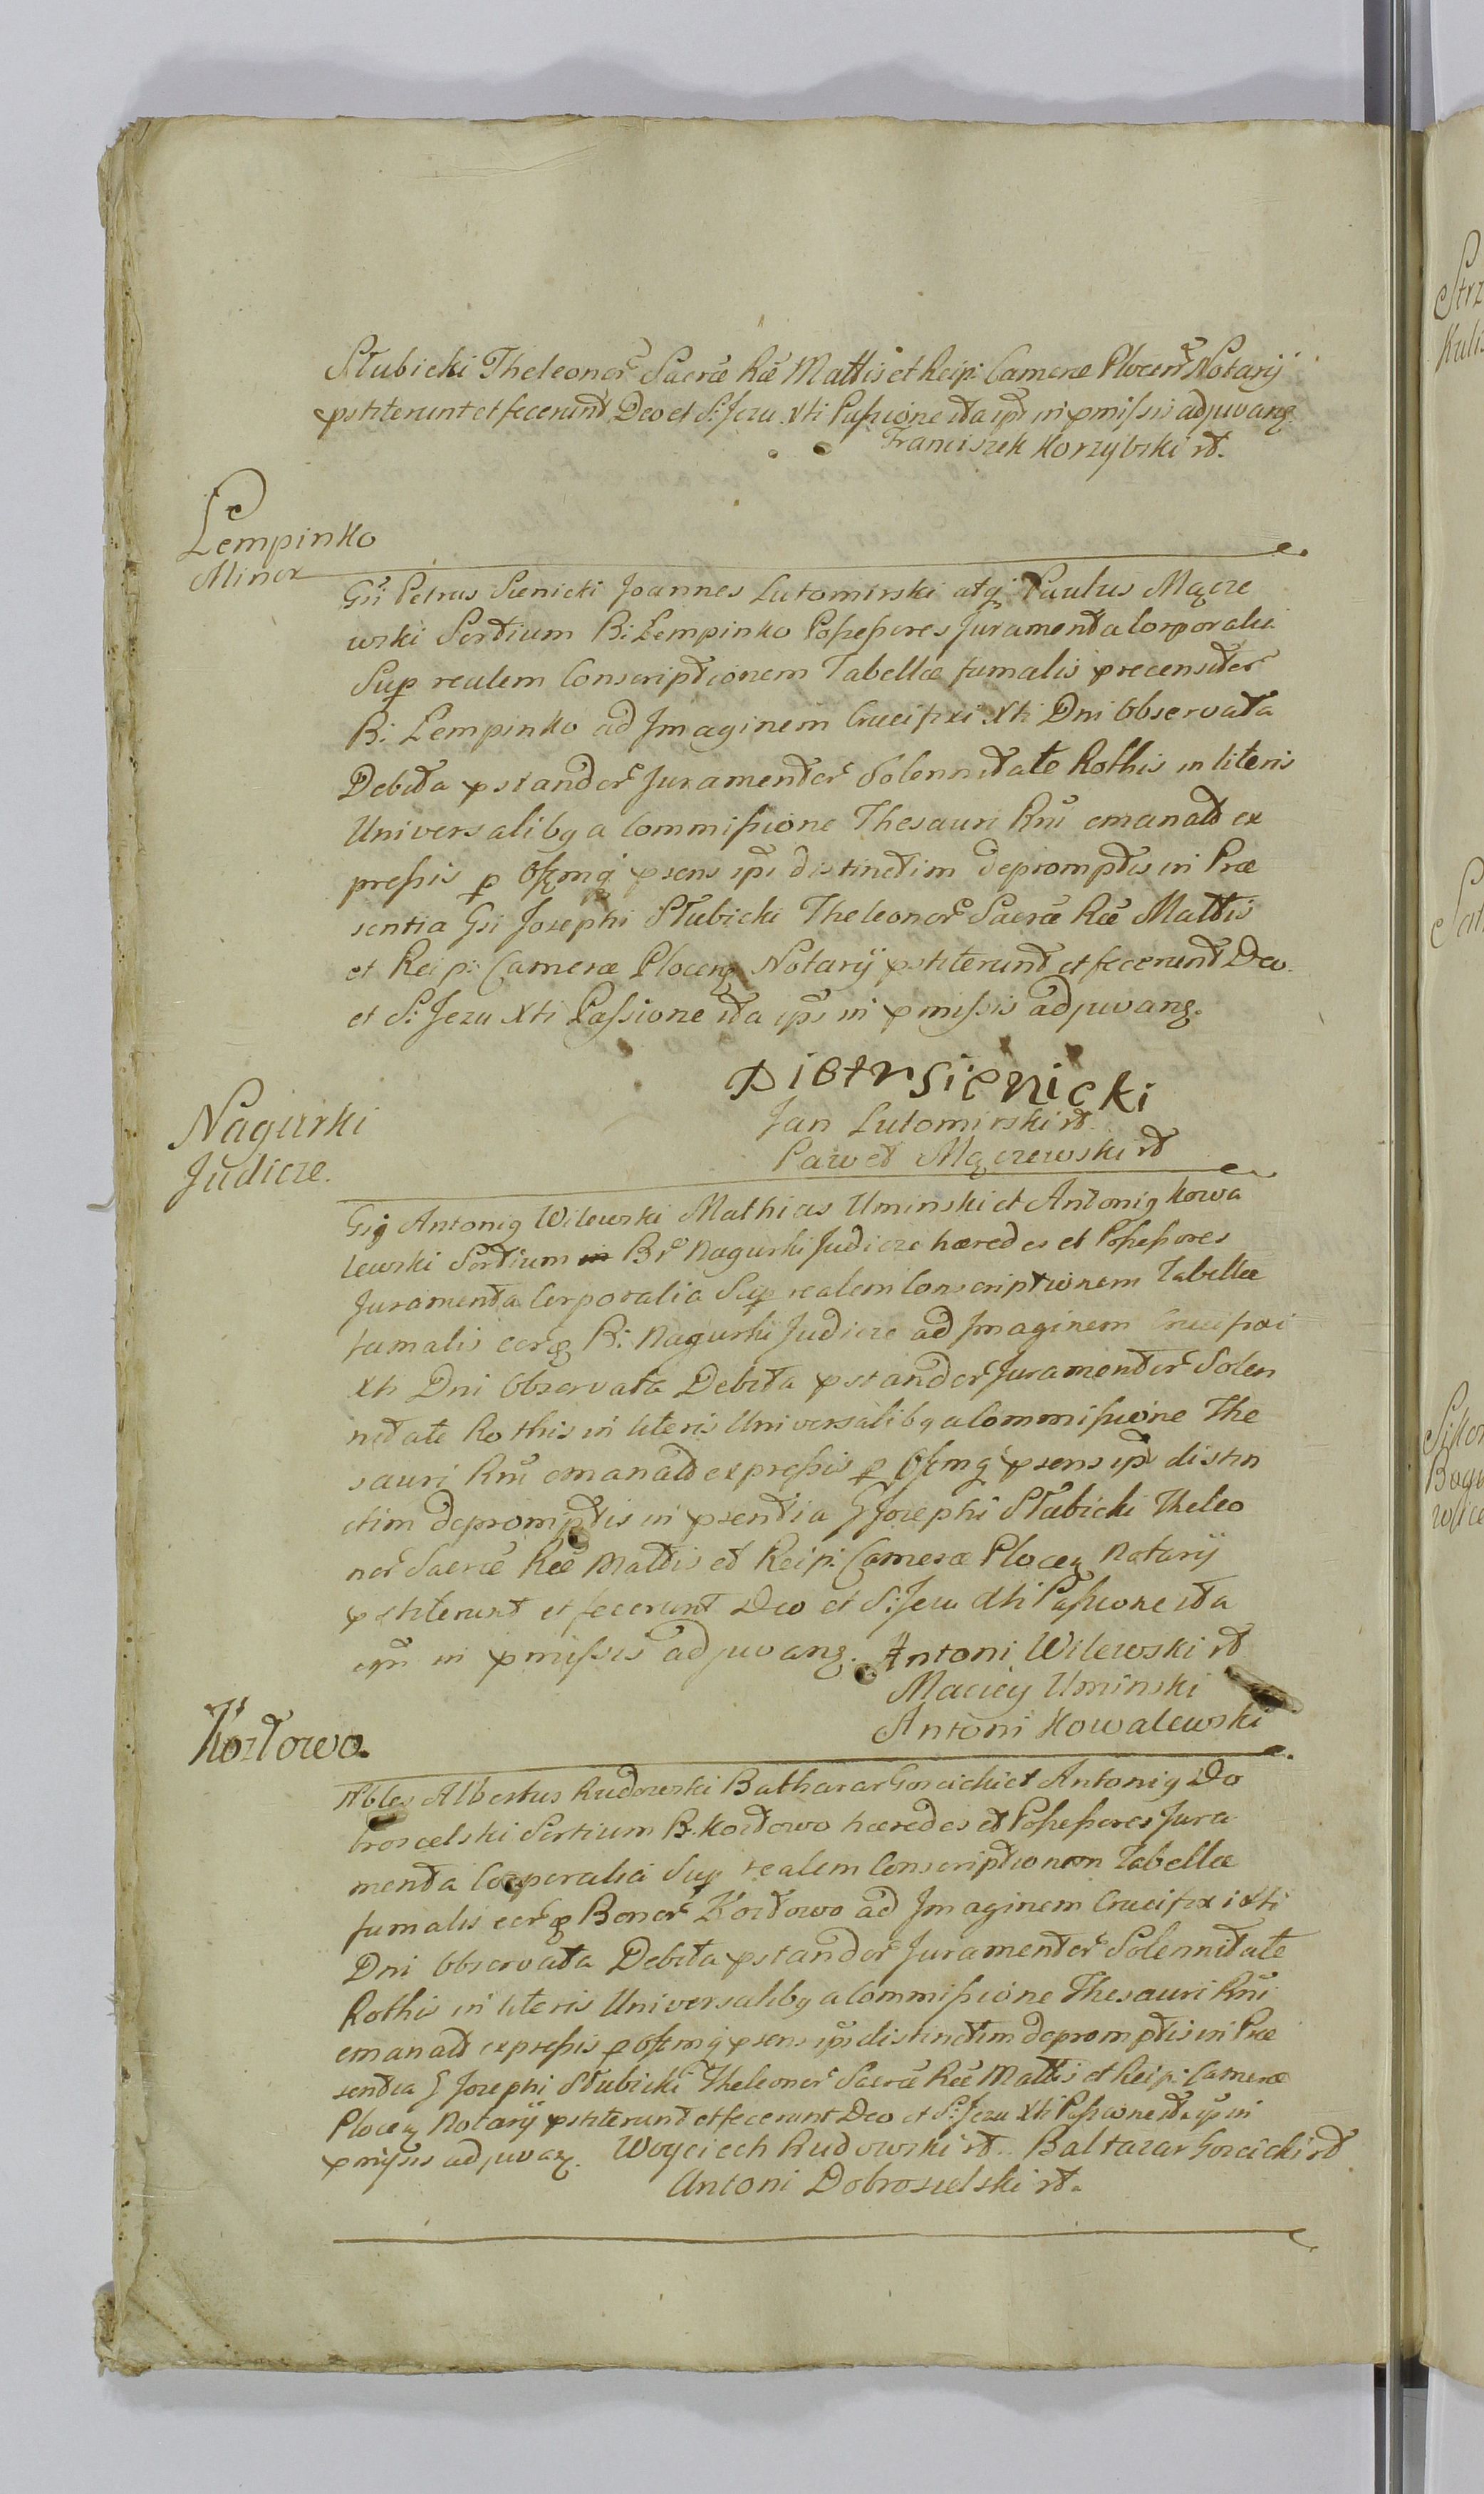 Słubicki Theleoner Sacræ Ræ Mattis et Reip: Cameræ Plocen Notarÿ
pstiterunt et fecerunt Deo et S: Jezu Xti Passione ita ips in pmissis adjuvang
Franciszek Korzybski rt.
Lempinko
Minor
Gsi Petrus Sienicki Joannes Lutomirski atq Paulus Mącze
wski Sortium B: Lempinko Possessores Juramenta Corporalia
Sup realem Conscriptionem Tabellæ fumalis precensiter
B: Lempinko ad Imaginem Crucifixi Xti Dni Observata
Debita pstander Juramenter Solennitate Rothis in literis
Universalibq a Commissione Thesauri Rni emanatt ex
pressis p Offmq psens ips distinctim depromptis in Præ
sentia Gsi Josephi Słubicki Theleoner Sacræ Ræ Mattis
et Reip: Cameræ Plocenq Notarÿ pstiterunt et fecerunt Deo
et S: Jezu Xti Passione ita ips in pmissis adjuvang.
Piotr Sienicki
Jan Lutomirski rt
Paweł Mączewski rt
Nagurki
Judicze.
Gsiq Antoniq Wilewski Mathias Uminski et Antoniq Kowa
lewski Sortium Br Nagurki Judicze hæredes et Possessores
Juramenta Corporalia Sup realem Conscriptionem Tabellæ
fumalis eorq B: Nagurki Judicze ad Imaginem Crucifixi
Xti Dni Observata Debita pstander Juramenter Solen
nitate Rothis in literis Universalibq a Commissione The
sauri Rni emanatt expressis p Offmq psens ips distin
ctim depromptis in psentia G Josephi Słubicki Theleo
ner Sacræ Ræ Mattis et Reip: Cameræ Plocenq Notarÿ
pstiterunt et fecerunt Deo et S: Jezu Xti Passione ita
ips in pmissis adjuvang. Antoni Wilewski rt
Maciey Uminski
Antoni Kowalewski
Kozłowo.
Nbles Albertus Rudowski Bathazar Goscicki et Antoniq Do
broscelski Sortium B. Kozłowo hæredes et Possessores Jura
menta Corporalia Sup realem Conscriptionem Tabellæ
fumalis eorq Boner Kozłowo ad Imaginem Crucifixi Xti
Dni Observata Debita pstander Juramenter Solennitate
Rothis in literis Universalibq a Commissione Thesauri Rni
emanatt expressis p Offmq psens ips distinctim depromptis in Præ
sentia G Josephi Słubicki Theleoner Sacræ Ræ Mattis et Reip: Cameræ
Plocenq Notarÿ pstiterunt et fecerunt Deo et S: Jezu Xti Passione ita ips in
pmissis adjuvang. Woyciech Rudowski rt. Baltazar Goscicki rt
Antoni Dobroscelski rt.